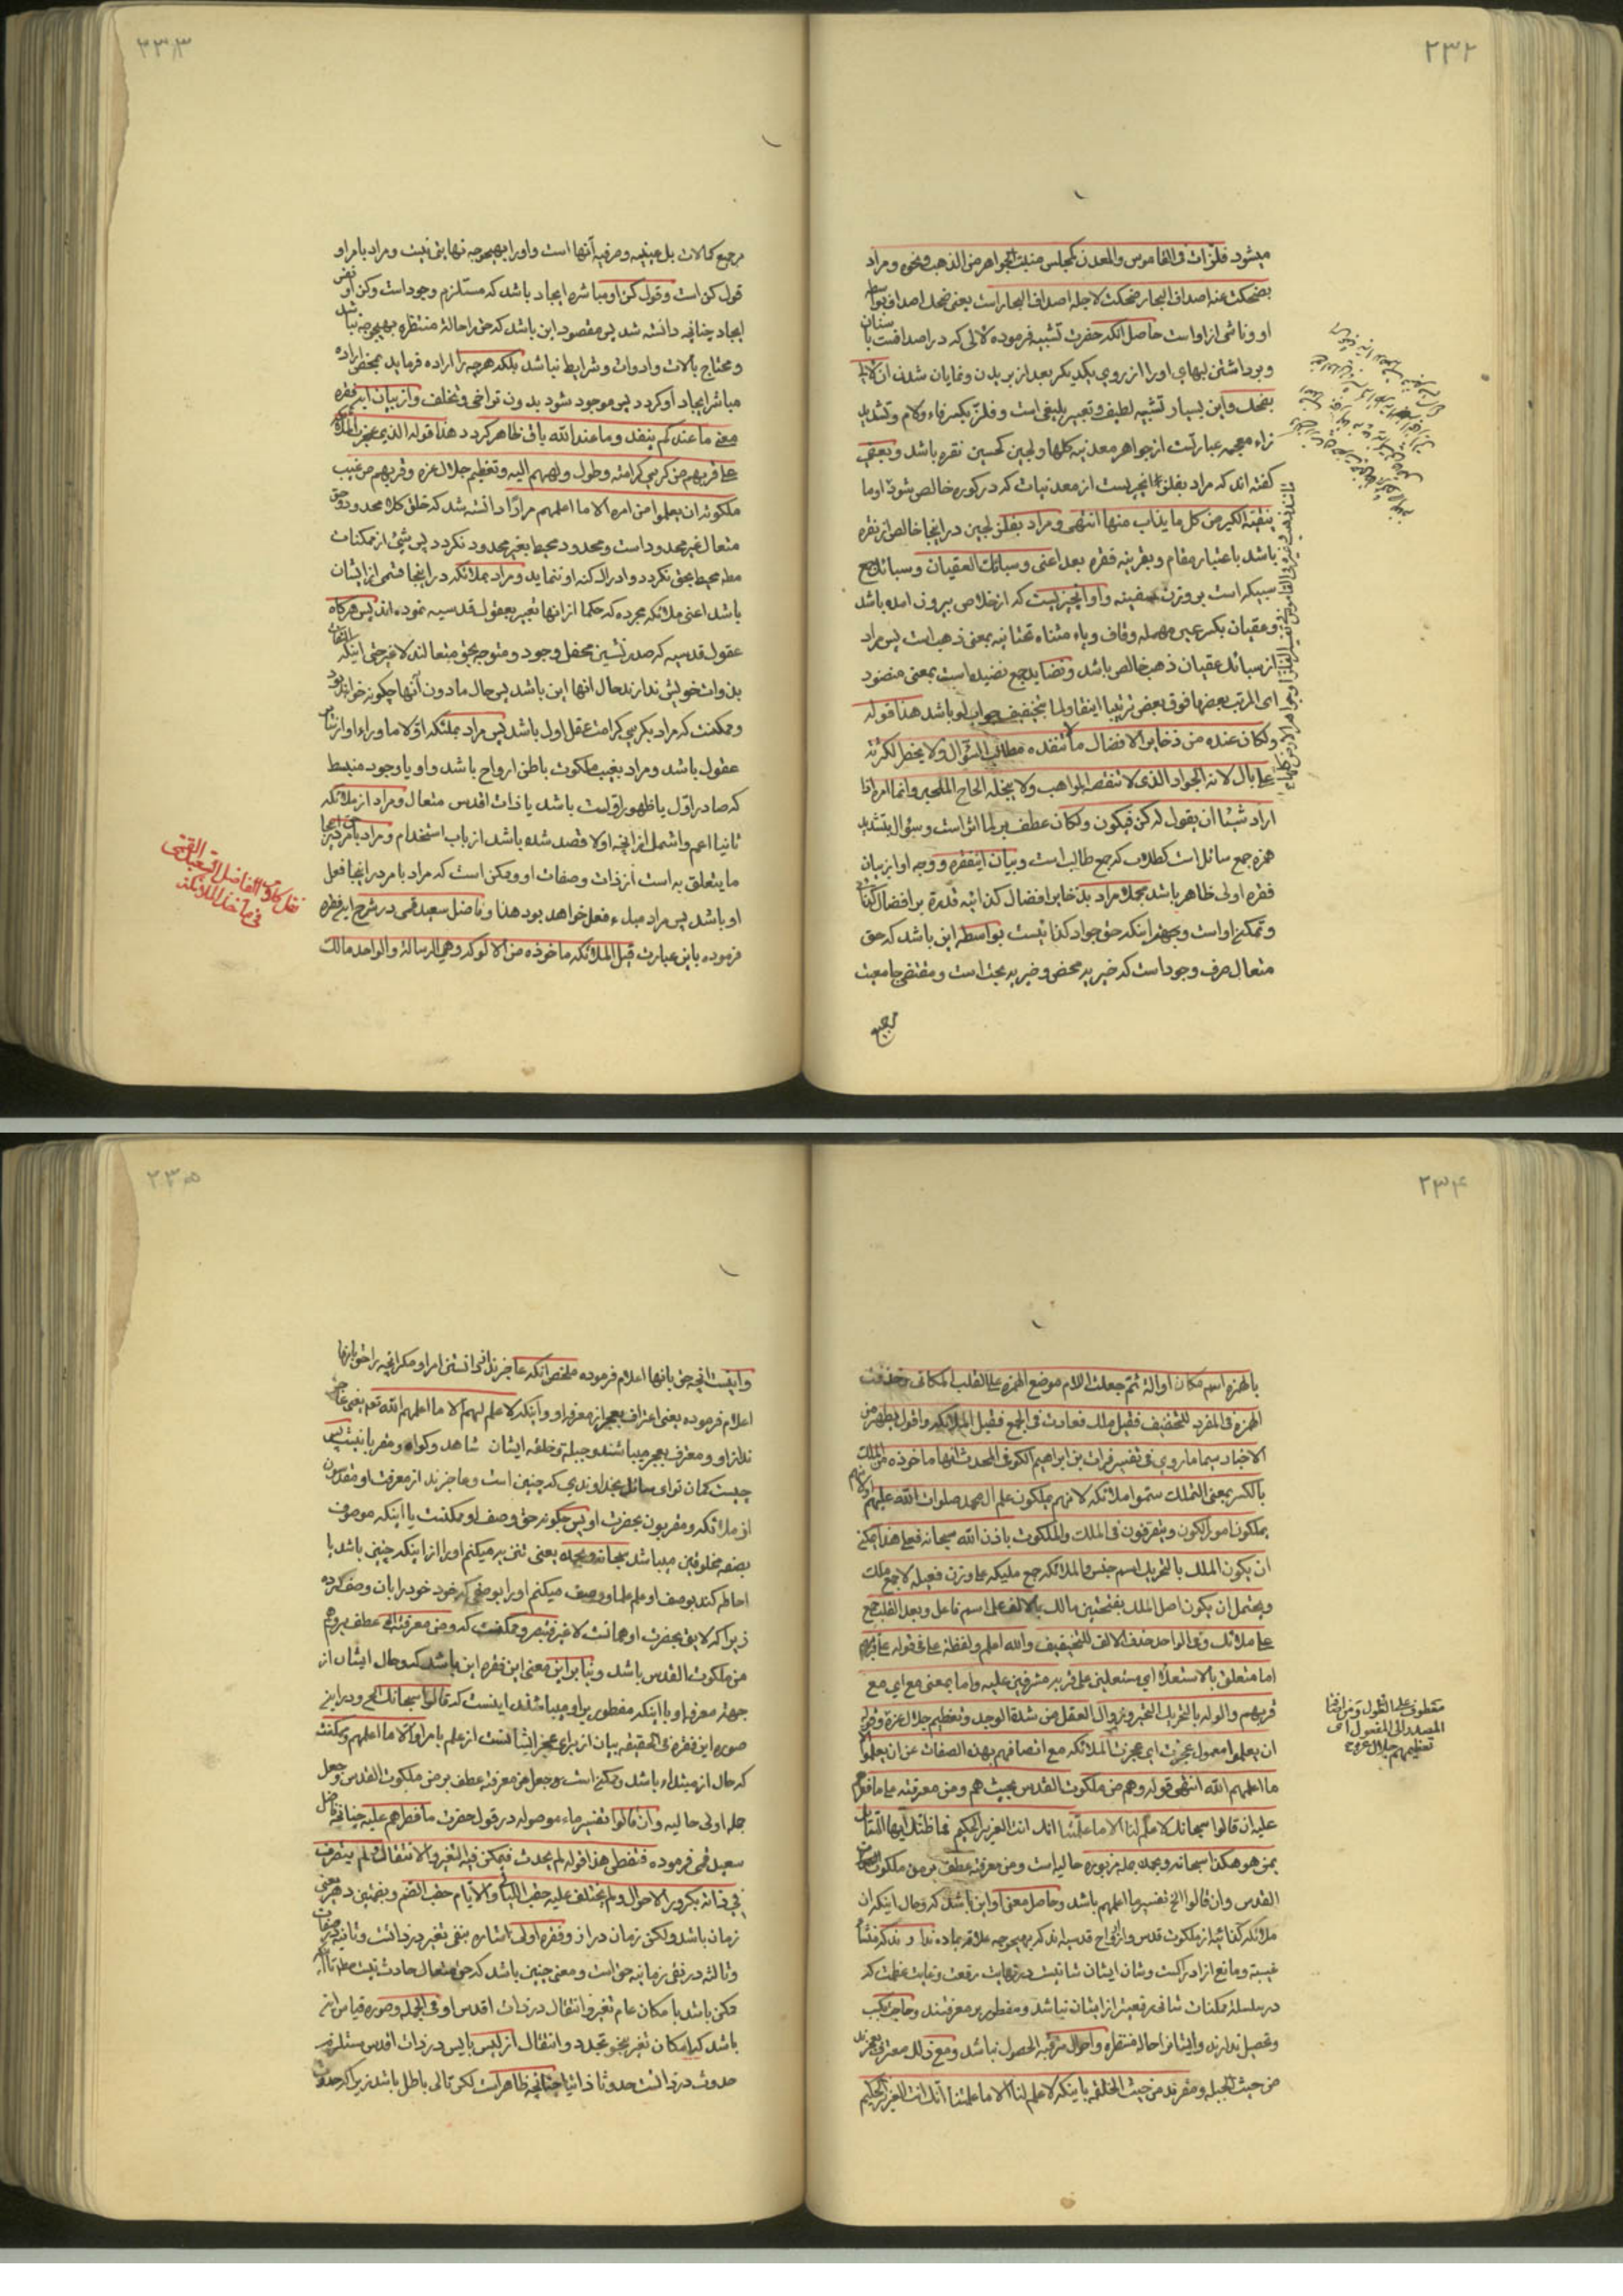 ۲۳۲
میشود فلزات فی القاموس والمعدن کمجلس منبت الجواهر من الذهب ونحوه ومراد
بضحکت عنه اصداف البحار ضحکت لاجله اصداف البحار است یعنی ضحک اصداف بواسطه
او وناشی از او است حاصل آنکه حضرت تشبیه فرموده لآلی که در اصدافست
وبرداشتن لبهای او را از روی یکدیکر بعد از بریدن ونمایان شدن آن لآلی
بضحک واین بسیار تشبیه لطیف وتعبیر بلیغی است وفلز بکسر فاء ولام وتشدید
زاء معجمه عبارتست از جواهر معدنیه کلها ولجین کحسین نقره باشد وبعضی
کفته اند که مراد بفلز آنچیزیست از معدنیات که در کوره خالص شود او ما
ینقیه الکیر من کل ما یذاب منها انتهی ومراد بفلز لجین در اینجا خالص از نقره
باشد باعتبار مقام وبقرینه فقره بعد اعنی وسبائک العقیان وسبائک جمع
سبیکه است بر وزن سفینه واو آنچیزیست که از خلاص بیرون آمده باشد
وعقیان بکسر عین مهمله وقاف ویاء مثناه تحتانیه بمعنی ذهب است پس مراد
از سبائک عقیان ذهب خالص باشد ونضاید جمع نضیده است بمعنی منضود
ای المرتب بعضها فوق بعض ترتیبا انیقا ولما بتخفیف جواب لو باشد هذا قوله
ولکان عنده من ذخایر الافضال ما لا تنفده مطالب السؤال ولا یخطر لکثرته
علی بال لانه الجواد الذی لا تنقصه المواهب ولا یبخله الحاح الملحین وانما امره اذا
اراد شیئا ان یقول له کن فیکون ولکان عطف بر لما اثر است وسؤال بتشدید
همزه جمع سائل است کطلاب که جمع طالب است وبیان اینفقره ووجه او از بیان
فقره اولی ظاهر باشد مجملا مراد بذخایر افضال کذائیه قدرة بر افضال
وتمکن او است وجهة اینکه حق جواد کذائیست بواسطه این باشد که حق
متعال صرف وجود است که خیریه محض وخیریه بحت است ومقتضی جامعیت
مرجع
۲۳۳
مرجع کمالات بل عینیه وصرفیه آنها است واورا بهیچوجه نهایتی نیست ومراد بامر او
قول کن است وقول کن او مباشره ایجاد باشد که مستلزم وجود است وکن او نفس
ایجاد چنانچه دانسته شد پس مقصود این باشد که حق را حاله منتظره بهیچوجه نباشد
ومحتاج بآلات وادوات وشرایط نباشد بلکه هرچه را اراده فرماید بمحض اراده
مباشر ایجاد او کردد پس موجود شود بدون تراخی وتخلف واز بیان این فقره
معنی ما عندکم ینفد وما عند الله باق ظاهر کردد هذا قوله الذی عجزت الملائکة
علی قربهم من کرسی کرامته وطول ولههم الیه وتعظیم جلال عزه وقربهم من غیب
ملکوته ان یعلموا من امره الا ما اعلمهم مرارا دانسته شد که خلق کلا محدود وحق
متعال غیر محدود است ومحدود محیط بغیر محدود نکردد پس شیئ از ممکنات
مطلقا محیط بحق نکردد وادراک کنه او ننماید ومراد بملائکه در اینجا قسمی از ایشان
باشد اعنی ملائکه مجرده که حکما از آنها تعبیر بعقول قدسیه نموده اند پس هرکاه
عقول قدسیه که صدرنشین محفل وجود ومتوجه بحق متعالند لا غیر حتی اینکه التفات
بذوات خویش ندارند حال آنها این باشد پس حال مادون آنها چکونه خواهد بود
وممکنست که مراد بکرسی کرامت عقل اول باشد پس مراد بملئکه اولا ماوراء او از
عقول باشد ومراد بغیب ملکوت باطن ارواح باشد واو یا وجود منبسط
که صادر اول یا ظهور اولیست باشد یا ذات اقدس متعال ومراد از ملائکه
ثانیا اعم واشمل از آنچه اولا قصد شده باشد از باب استخدام ومراد بامر در اینجا
ما یتعلق به است از ذات وصفات او وممکن است که مراد بامر در اینجا فعل
او باشد پس مراد مبدء فعل خواهد بود هذا وفاضل سعید قمی در شرح این فقره
فرموده باین عبارت قیل الملائکه ماخوذه من الالوکه وهی الرسالة والواحد مالک
نقل کلام الفاضل السعید القمی
فی ماخذ الملائکة
۲۳۴
بالهمزه اسم مکان او آلة ثم جعلت اللام موضع الهمزه علی القلب المکانی وحذفت
الهمزة فی المفرد للتخفیف فقیل ملک فعادت فی الجمع فقیل الملائکه واقول یظهر من
الاخبار سیما ما روی فی تفسیر فرات بن ابراهیم الکوفی المحدث انها ماخوذه من الملک
بالکسر بمعنی التملک سموا ملائکه لانهم یملکون علم آل محمد صلوات الله علیهم
یملکون امور الکون ویتصرفون فی الملک والملکوت باذن الله سبحانه فعلی هذا یمکن
ان یکون الملک بالتحریک اسم جنس والملائکه جمع ملیکه علی وزن فعیله لا جمع ملک
ویحتمل ان یکون اصل الملک بفتحتین مالک بالالف علی اسم فاعل وبعد القلب جمع
علی ملائک وفی الواحد حذف الالف للتخفیف والله اعلم ولفظة علی فی قوله علی قربهم
اما متعلق بالاستعلاء ای مستعلین علی قربه مشرفین علیه واما بمعنی مع ای مع
قربهم والوله بالتحریک التحیر وزوال العقل من شدة الوجد وتعظیم جلال عزه
ان یعلموا معمول عجزت ای عجزت الملائکه مع اتصافهم بهذه الصفات عن ان یعلموا
ما اعلمهم الله انتهی قوله وهم من ملکوت القدس بحیث هم ومن معرفته علی ما فطرهم
علیه ان قالوا سبحانک لا علم لنا الا ما علمتنا انک انت العزیز الحکیم فما ظنک ایها السائل
بمن هو هکذا سبحانه وبحمده جمله مزبوره حالیه است ومن معرفته عطف بر من ملکوت
القدس وان قالوا الخ تفسیر ما اعلمهم باشد وحاصل معنی او این باشد که وحال اینکه آن
ملائکه کذائیه از ملکوت قدس وارواح قدسیه اند که بهیچوجه علاقه بماده ندارند که منشأ
غیبة ومانع از ادراکست وشان ایشان شانیست در نهایت رفعت وغایت عظمت که
در سلسله ممکنات شانی رفیعتر از ایشان نباشد ومفطور بر معرفتند وحاجة بکسب
وتحصیل ندارند وایشانرا حاله منتظره واحوال مترقبه الحصول نباشد ومع ذلک معترف بعجزند
من حیث الجبله ومقرند من حیث الخلقه باینکه لا علم لنا الا ما علمتنا انک انت العزیز الحکیم
معطوف علی الطول ومن اضافة
المصدر الی المفعول ای
تعظیمهم جلال عزه
۲۳۵
واینست آنچه حق بآنها اعلام فرموده ملخص آنکه عاجزند از دانستن امر او مکر آنچه را حق بآنها
اعلام فرموده یعنی اعتراف بعجز از معرفة او واینکه لا علم لهم الا ما اعلمهم الله تعالی
ندارند ومعترف بعجز میباشند وجبلة وخلقه ایشان شاهد وکواه ومقر باینست پس
چیست کمان تو ای سائل بخداوندی که چنین است وعاجزند از معرفت او مقدسون
از ملائکه ومقربون بحضرت او پس چکونه حق وصف او ممکنست یا اینکه موصوف
بصفه مخلوقین میباشد سبحانه وبحمده یعنی تنزیه میکنم اورا از اینکه چنین باشد یا
احاطه کند بوصف او علم علما ووصف میکنم اورا بوصفی که خود خود را بآن وصف کرده
زیرا که لایق بحضرت او همانست لا غیر فتبصر وممکنست که ومن معرفته الخ عطف بر وهم
من ملکوت القدس باشد وبنابراین معنی این فقره این باشد که وحال ایشان از
جهة معرفة او با اینکه مفطور بر او میباشند اینست که قالوا سبحانک الخ ودر این
صوره این فقره فی الحقیقه بیان از برای عجز ایشانست از علم بامر او الا ما اعلمهم وممکنست
که حال از مبتداء باشد وممکن است ومن معرفته عطف بر من ملکوت القدس وجعل
جمله اولی حالیه وان قالوا تفسیر ماء موصوله در قول حضرت ما فطرهم علیه چنانچه فاضل
سعید قمی فرموده فتفطن هذا قوله لم یحدث فیمکن فیه التغیر والانتقال ولم یتصرف
فی ذاته بکرور الاحوال ولم یختلف علیه حقب اللیالی والایام حقب بالضم وبضمتین دهر یعنی
زمان باشد ولکن زمان دراز وفقره اولی اشاره بنفی تغیر در ذاتست وثانیه در صفات
وثالثه در نفی زمانیه حق است ومعنی چنین باشد که حق متعال حادث نیست
ممکن باشد بامکان عام تغیر وانتقال در ذات اقدس او وفی الجمله وصوره قیاس این
باشد که امکان تغیر بنحو تجدد وانتقال از لیس بایس در ذات اقدس مستلزم
حدوث در ذاتست حدوثا ذاتیا چنانچه ظاهر است لکن تالی باطل باشد زیرا که حدوث